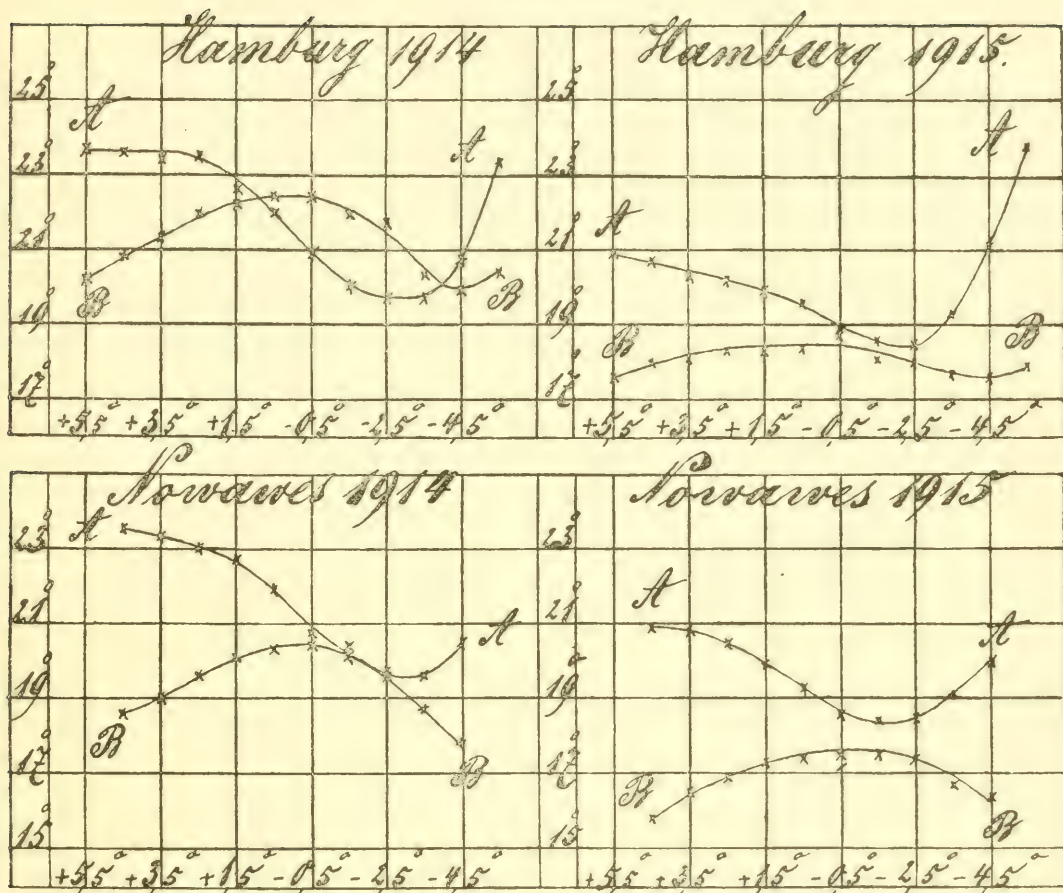 Hamburg 1914
25°
A
23°
A
21°
B
B
19°
17°
+5,5° +3,5° +1,5° -0,5° -2,5° -4,5°
Hamburg 1915.
25°
23°
A
21°
A
19°
B
B
17°
+5,5° +3,5° +1,5° -0,5° -2,5° -4,5°
Nowawes 1914
A
23°
21°
A
19°
B
17°
B
15°
+5,5° +3,5° +1,5° -0,5° -2,5° -4,5°
Nowawes 1915
23°
A
21°
A
19°
17°
B
B
15°
+5,5° +3,5° +1,5° -0,5° -2,5° -4,5°